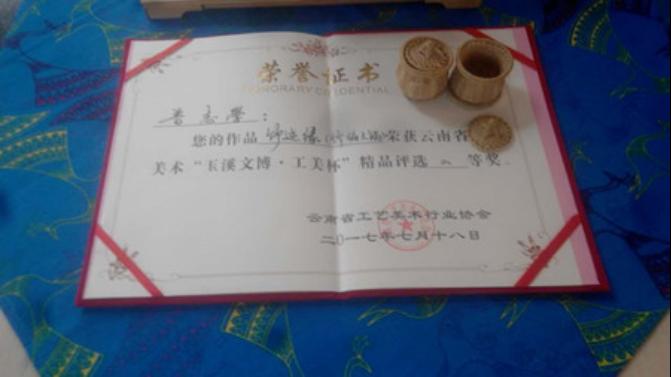 荣誉证书
HONORARY CREDENTIAL
普
您的作品 荣获云南省
美术“玉溪文博·工美杯”精品评选 二 等奖
云南省工艺美术行业协会
二〇一七年七月十八日